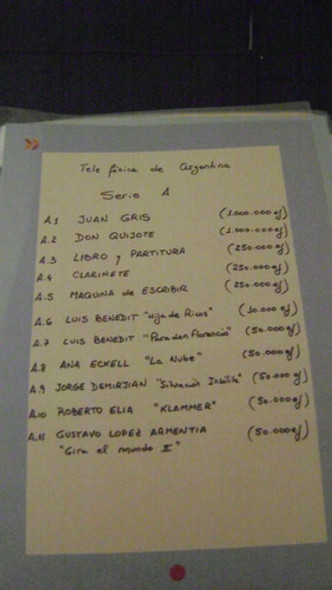 Telefónica de Argentina
Serie A
A.1 JUAN GRIS (1.000.000 ej)
A.2 DON QUIJOTE (1.000.000 ej)
A.3 LIBRO y PARTITURA (250.000 ej)
A.4 CLARINETE (250.000 ej)
A.5 MAQUINA de ESCRIBIR (250.000 ej)
A.6 LUIS BENEDIT "Hija de Ricos" (10.000 ej)
A.7 LUIS BENEDIT "Para don Florencio" (50.000 ej)
A.8 ANA ECKELL "La Nube" (50.000 ej)
A.9 JORGE DEMIRJIAN "Situación Insólita" (50.000 ej)
A.10 ROBERTO ELIA "KLAMMER" (50.000 ej)
A.11 GUSTAVO LOPEZ ARMENTIA (50.000 ej)
"Gira el mundo II"